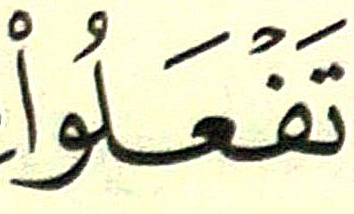 تَفْعَلُواْ